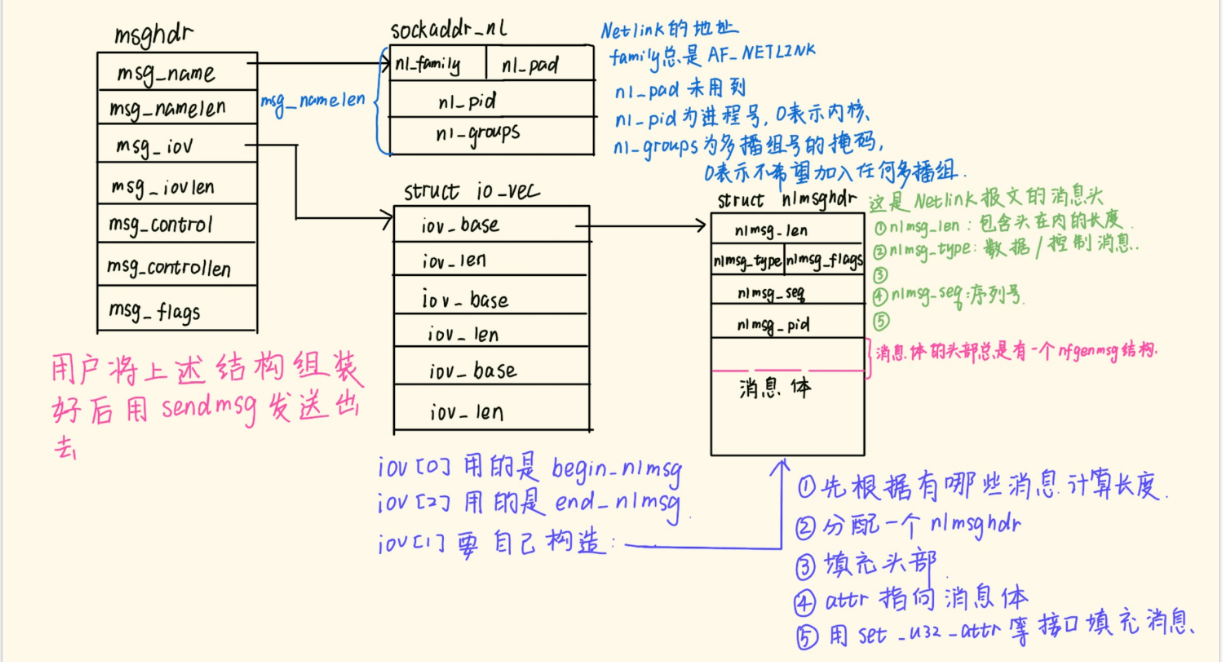 msghdr
msg_name
msg_namelen
msg_iov
msg_iovlen
msg_control
msg_controllen
msg_flags
msg_namelen
sockaddr_nl
nl_family
nl_pad
nl_pid
nl_groups
Netlink的地址
family总是 AF_NETLINK
nl_pad 未用到
nl_pid 为进程号, 0表示内核、
nl_groups 为多播组号的掩码,
0表示不希望加入任何多播组.
struct io_vec
iov_base
iov_len
iov_base
iov_len
iov_base
iov_len
struct nlmsghdr
nlmsg_len
nlmsg_type
nlmsg_flags
nlmsg_seq
nlmsg_pid
消息体
这是Netlink报文的消息头
①nlmsg_len: 包含头在内的长度.
②nlmsg_type: 数据/控制消息.
③
④nlmsg_seq:序列号.
⑤
消息体的头部总是有一个 nfgenmsg结构.
用户将上述结构组装
好后用 sendmsg 发送出
去
iov[0] 用的是 begin_nlmsg
iov[2] 用的是 end_nlmsg.
iov[1] 要自己构造:
①先根据有哪些消息计算长度.
②分配一个 nlmsghdr
③填充头部.
④attr 指向消息体
⑤用 set_u32_attr等接口填充消息.